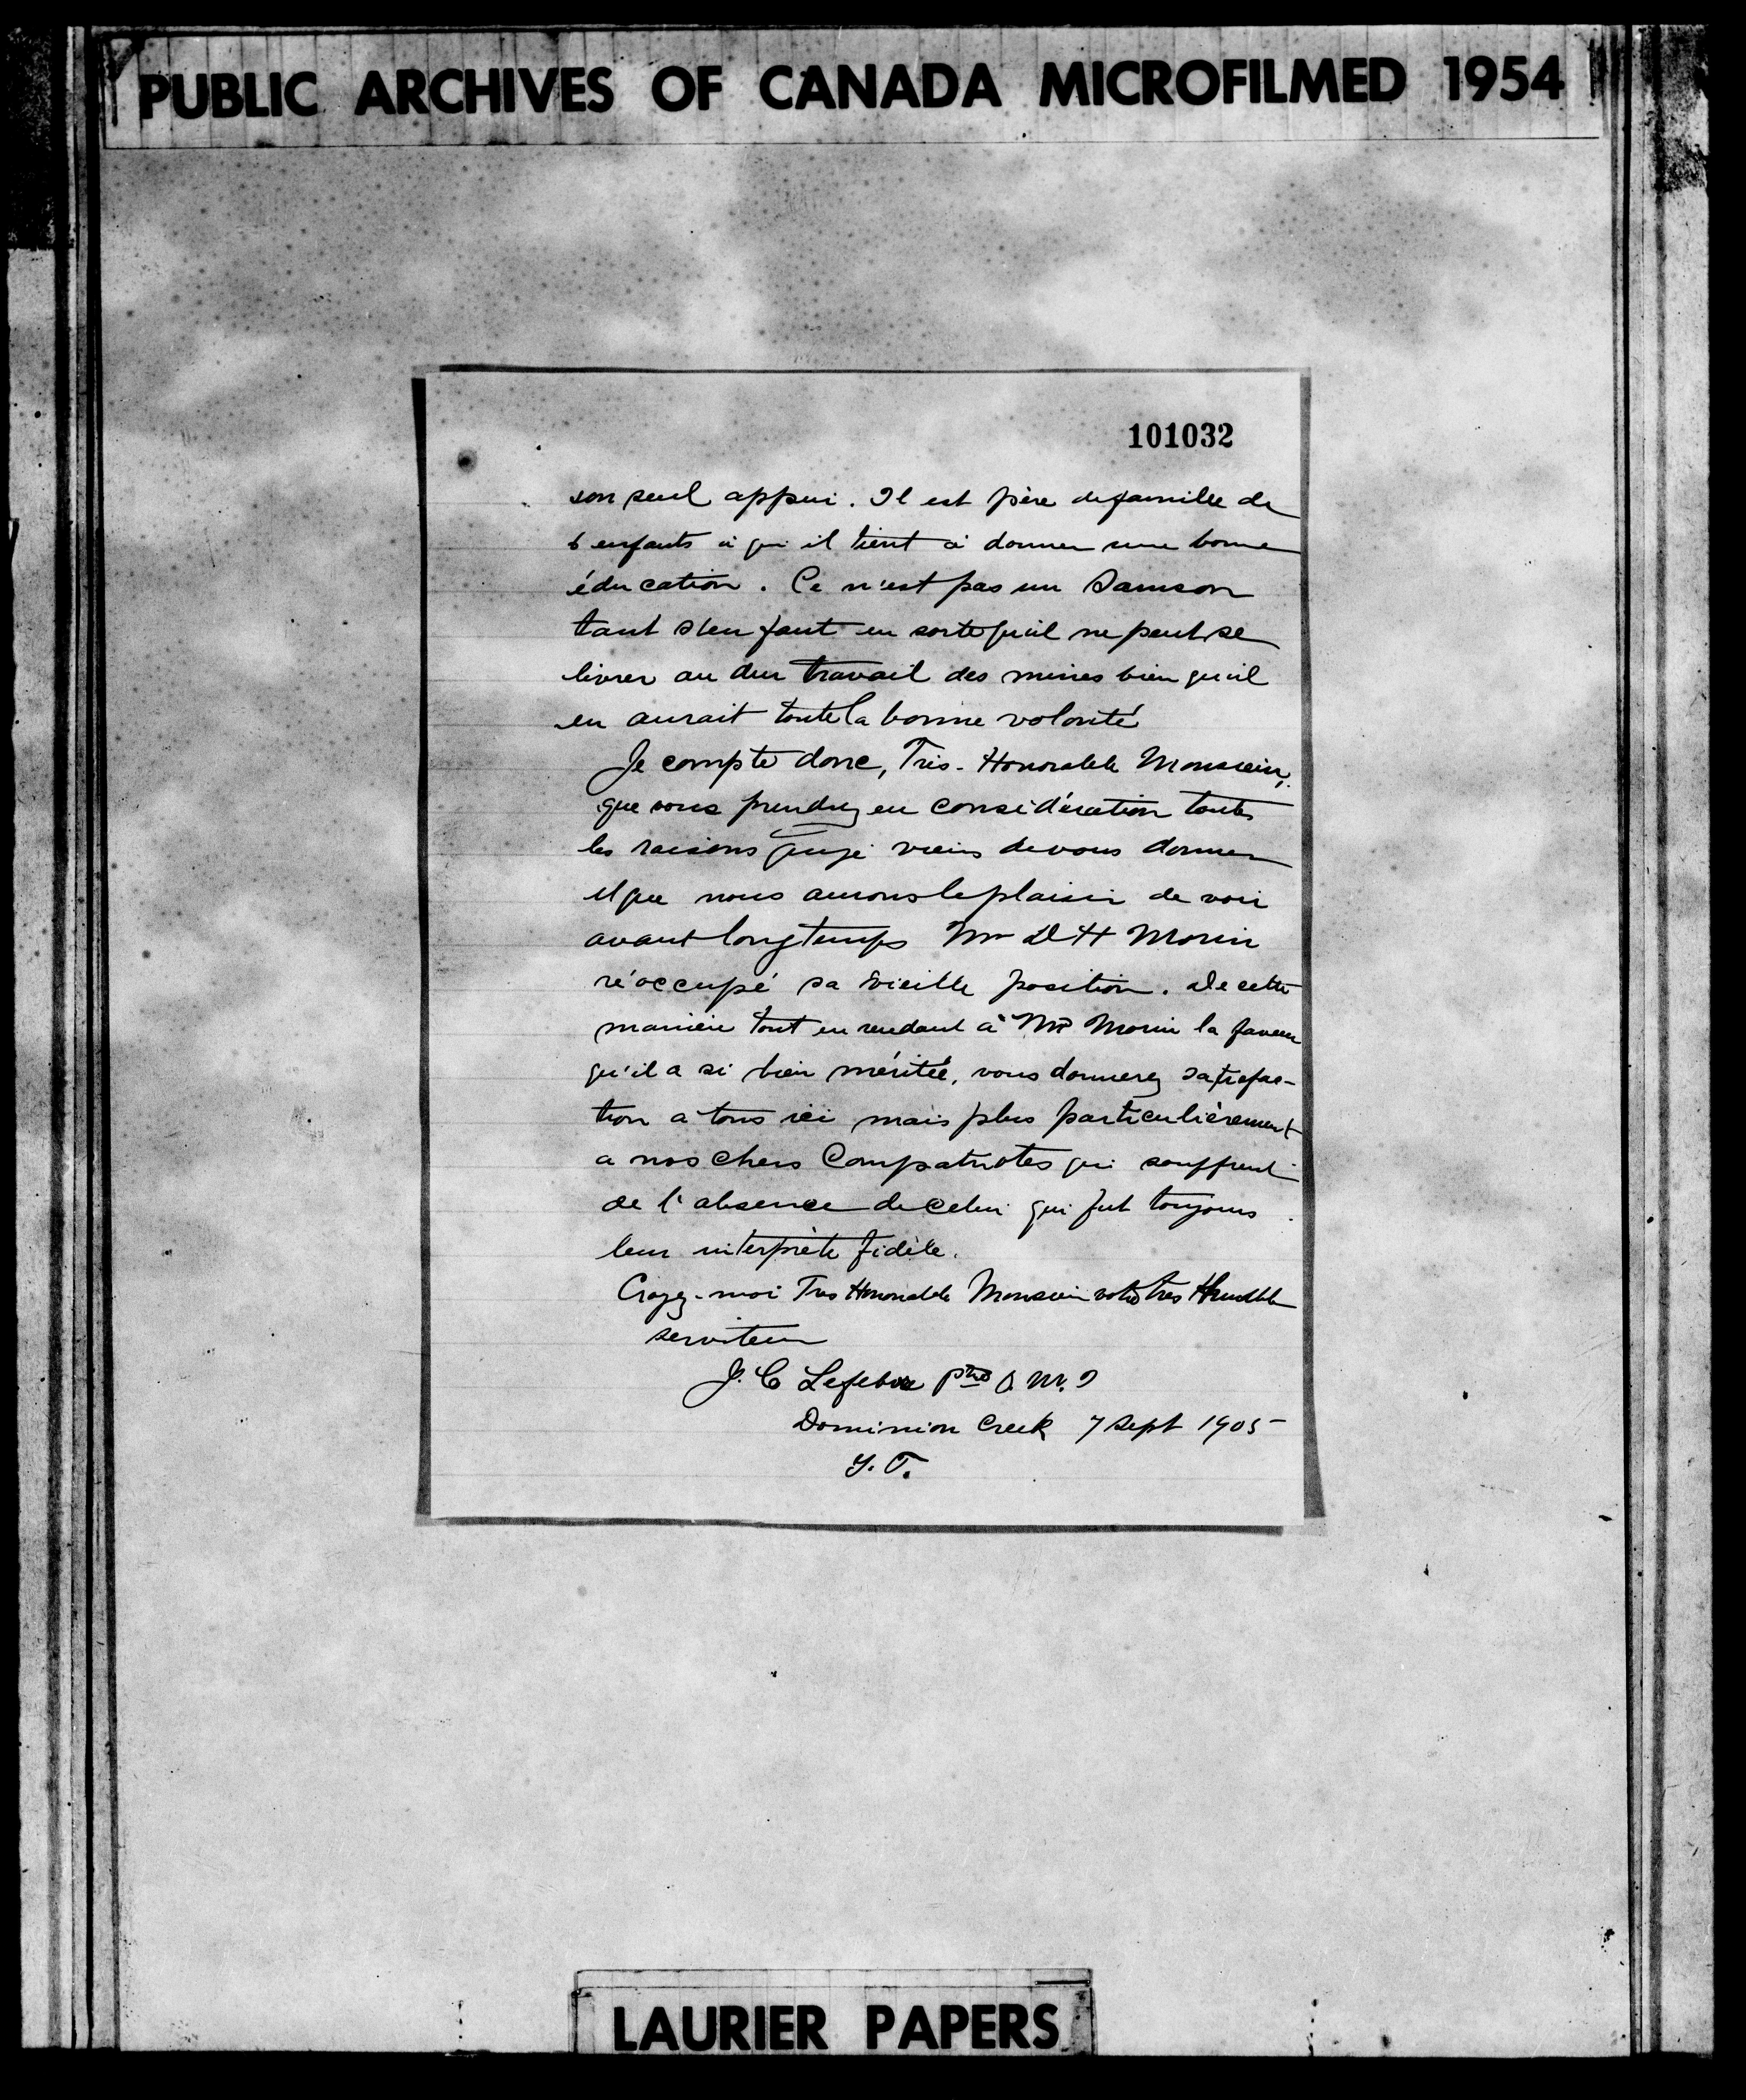 PUBLIC ARCHIVES OF CANADA MICROFILMED 1954
101032
son seul appui. Il est père de famille de
6 enfants à qui il tient à donner une bonne
éducation. Ce n'est pas un Samson
tant s'en faut en sorte qu'il ne peut se
livrer au dur travail des mines bien qu'il
en aurait toute la bonne volonté
Je compte donc, Très-Honorable Monsieur,
que vous prendrez en considération toutes
les raisons que je viens de vous donner
et que nous aurons le plaisir de voir
avant longtemps Mr D H Morin
réoccupé sa vieille position. De cette
manière tout en rendant à Mr Morin la faveur
qu'il a si bien méritée, vous donnerez satisfac-
tion a tous ici mais plus particulièrement
a nos chers Compatriotes qui souffrent
de l'absence de celui qui fut toujours
leur interprète fidèle.
Croyez-moi Tres Honorable Monsieur votre tres Humble
serviteur
J. C Lefebvre ptre O. M. I
Dominion Creek 7 Sept 1905
Y. T.
LAURIER PAPERS